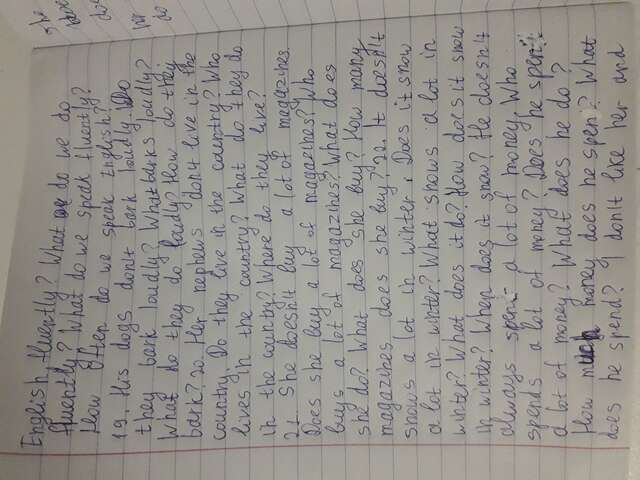 English fluently? What do we do
fluently? What do we speak fluently?
How often do we speak English?
19. His dogs don't bark loudly. Do
they bark loudly? What barks loudly?
What do they do loudly? How do they
bark? 20. Her nephews don't live in the
country. Do they live in the country? Who
lives in the country? What do they do
in the country? Where do they live?
21. She doesn't buy a lot of magazines.
Does she buy a lot of magazines? Who
buys a lot of magazines? What does
she do? What does she buy? How many
magazines does she buy? 22. It doesn't
snows a lot in winter. Does it snow
a lot in winter? What snows a lot in
winter? What does it do? How does it snow
in winter? When does it snow? He doesn't
always spen a lot of money. Who
spends a lot of money? Does he spen
a lot of money? What does he do?
How much money does he spen? What
does he spend? I don't like her and
she
have
does
We
do